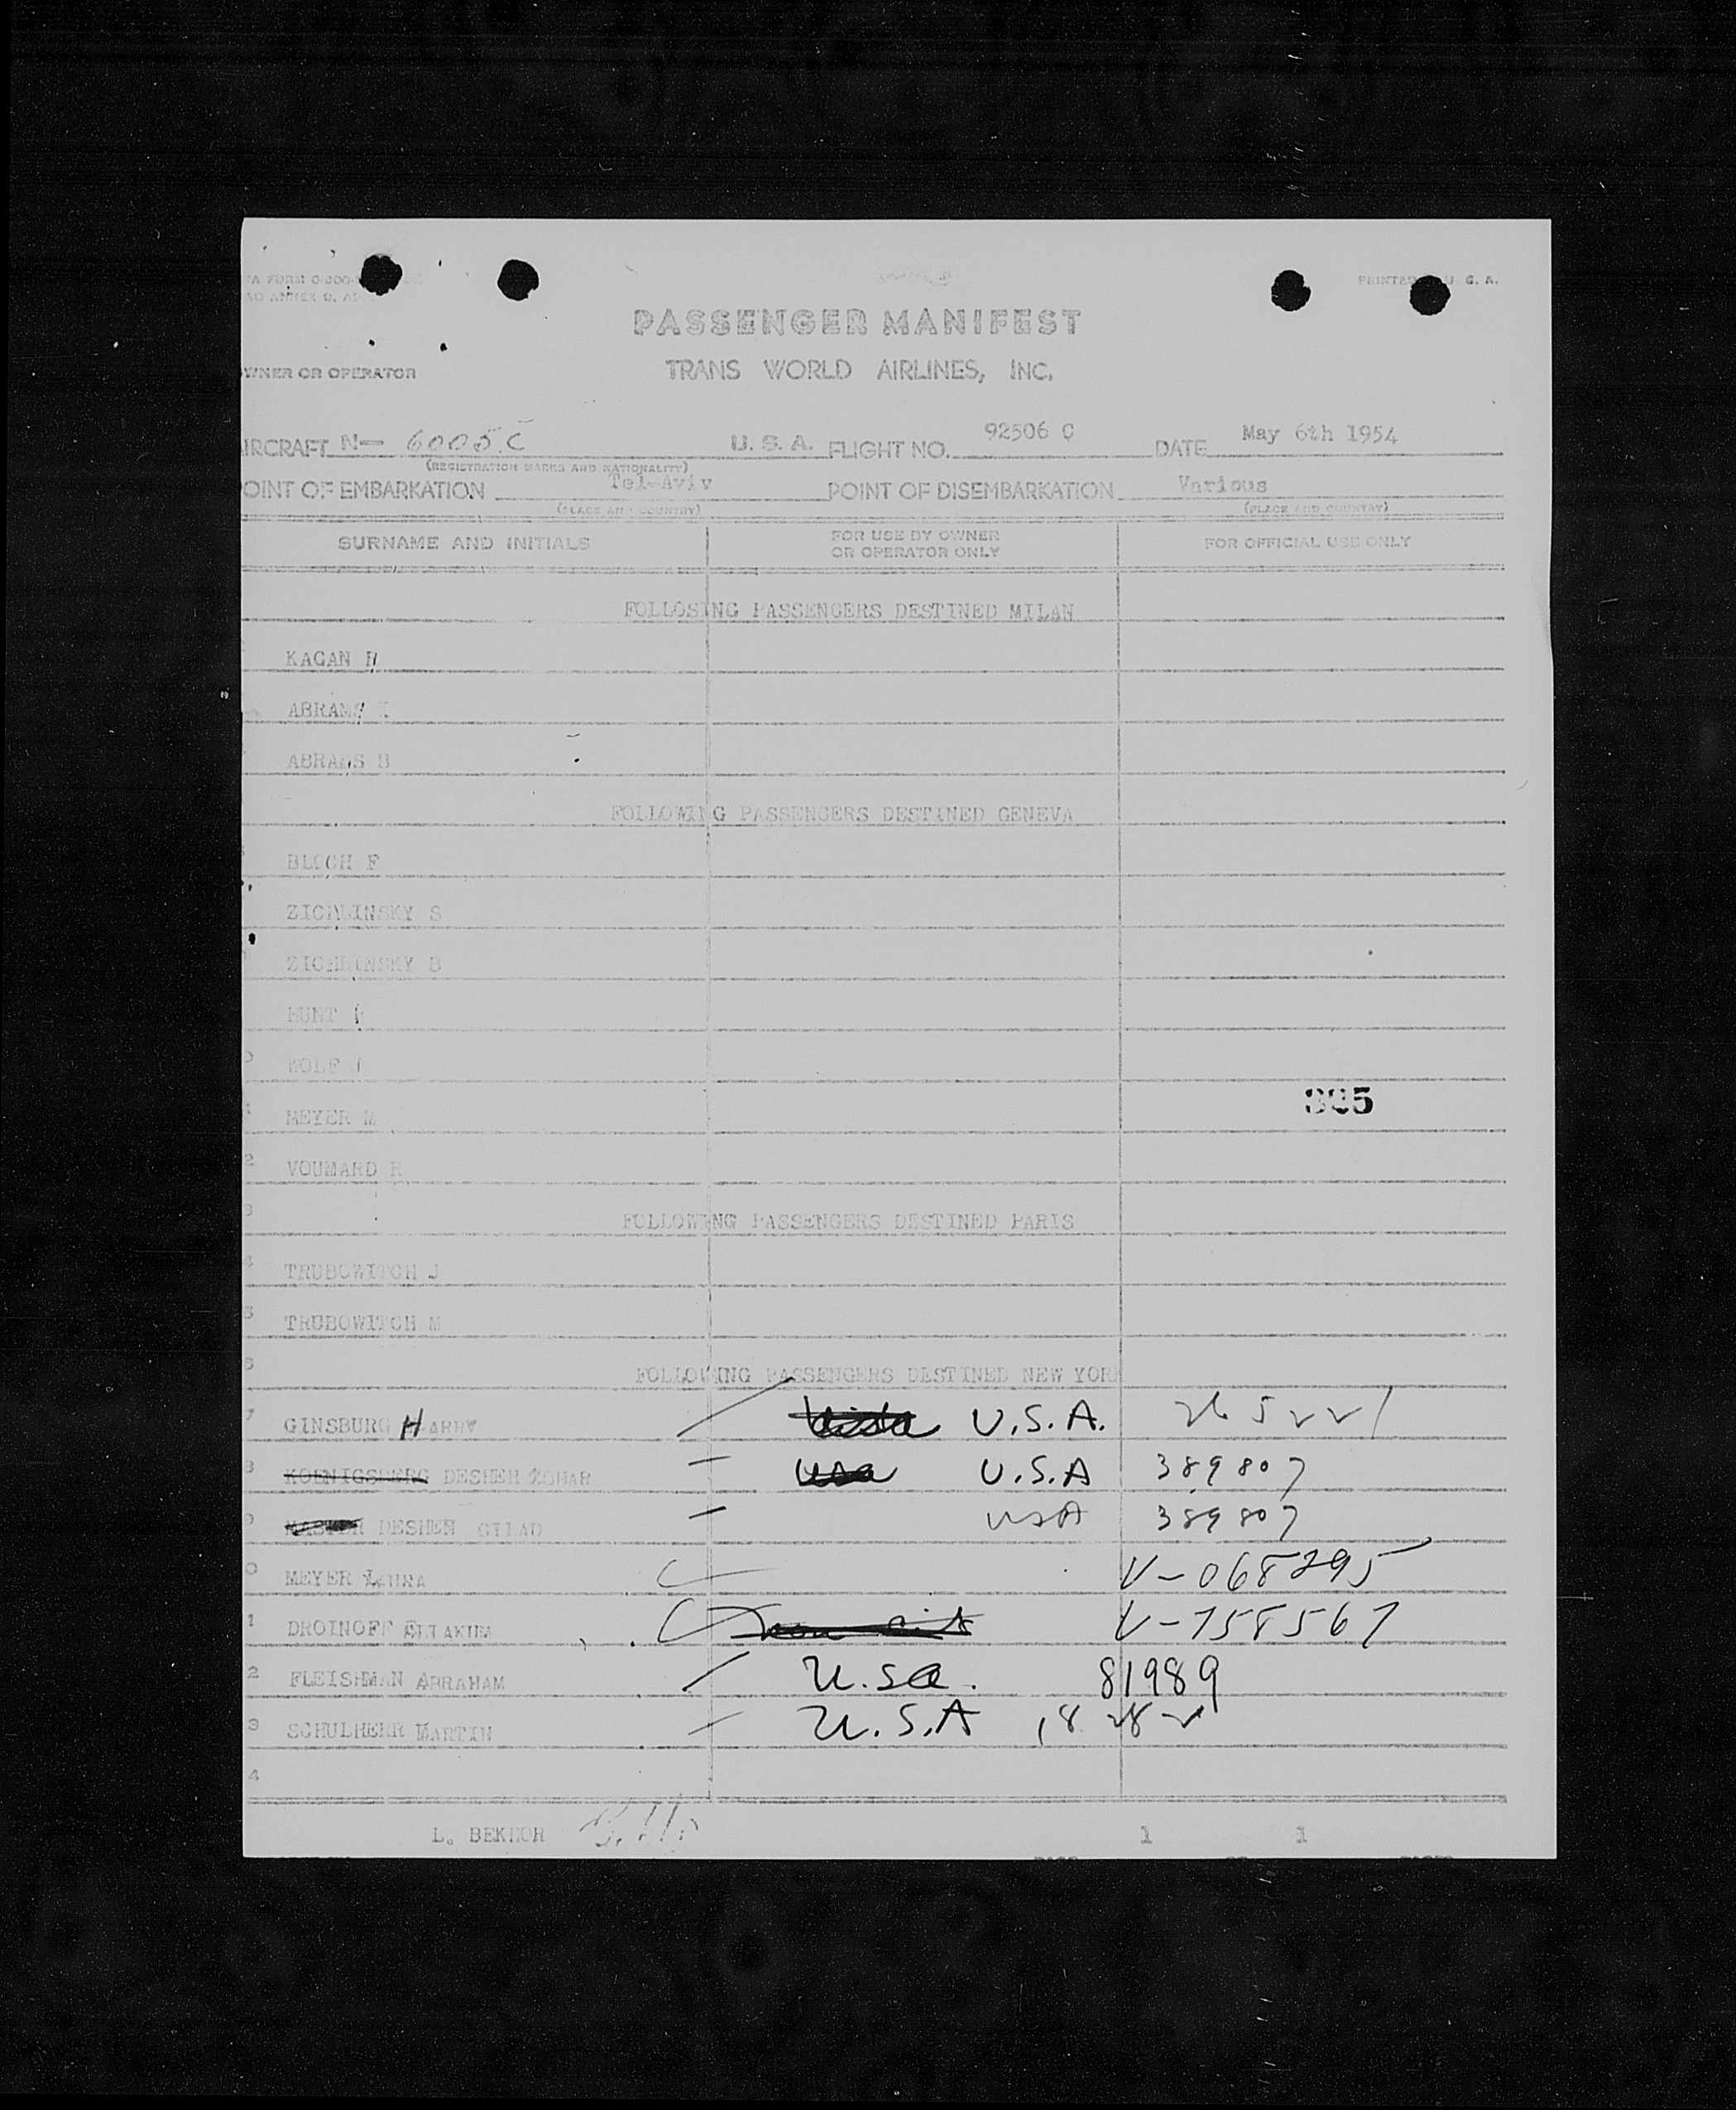 PRINTED U. S. A.
PASSENGER MANIFEST
TRANS WORLD AIRLINES, INC.
OWNER OR OPERATOR
AIRCRAFT N- 6005 C U. S. A. FLIGHT NO. 92506 C DATE May 6th 1954
(REGISTRATION MARKS AND NATIONALITY)
POINT OF EMBARKATION Tel-Aviv POINT OF DISEMBARKATION Various
(PLACE AND COUNTRY) (PLACE AND COUNTRY)
SURNAME AND INITIALS FOR USE BY OWNER OR OPERATOR ONLY FOR OFFICIAL USE ONLY
FOLLOSING PASSENGERS DESTINED MILAN
KAGAN H
ABRAMS I
ABRAMS B
FOLLOWING PASSENGERS DESTINED GENEVA
BLOCH F
ZICHLINSKY S
ZICHLINSKY B
HUNT
WOLF J
MEYER M
VOUMARD R
FOLLOWING PASSENGERS DESTINED PARIS
TRUBOWITCH J
TRUBOWITCH M
FOLLOWING PASSENGERS DESTINED NEW YORK
GINSBURG HARRY U.S.A.
KOENIGSBERG DESHEN ZOHAR usa U.S.A 389807
MASTER DESHEN GILAD USA 389807
MEYER LAURA V-068295
DROINOFF ELIAKUM V-758567
FLEISHMAN ABRAHAM U.sa. 81989
SCHULHERR MARTIN U.S.A
L. BEKHOR 1 1